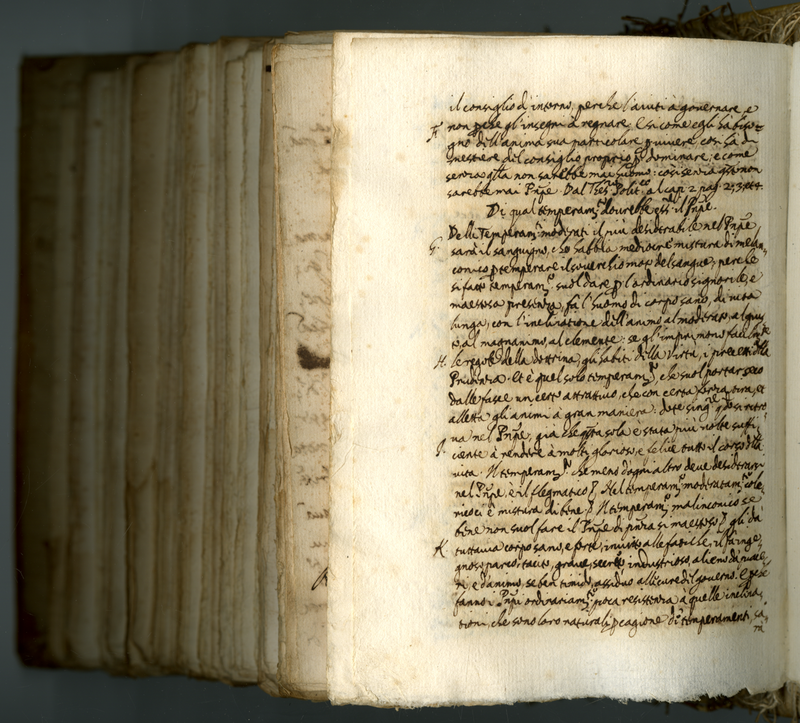 il consiglio d'intorno, perche l'aiuti à governare, e
F. non gl'insegni à regnare. E si come egli hà biso=
gno dell'anima sua particolare p vivere, così hà di
mestiere del consiglio proprio p dominare; e come
senza non sarebbe mai huomo: così senza non
sarebbe mai Pnpe. Dal Polit.co al cap: 2 pag.
Di qual temperam.to dourebbe il Pnpe.
G. Delli Temperam.ti moderati il più desiderabile nel Pnpe
sarà il sanguigno, che habbia mediocre mistura di melan,
conico p temperare il soverchio del sangue; perche
si fatto temperam.to suol dare p l'ordinario signorile, e
maestosa presenza, fà l'huomo di corpo sano, di vita
lunga, con l'inclinatione dell'animo al moderato, al gius
to, al magnanimo, al clemente: se gl'imprimono facilm.te
H. le regole della dottrina, gli habiti della Virtù, i precetti dlla
Prudenza. Et è quel solo temperam.to, che suol portar seco
dalle fasce un certo attrattivo, che con certa forza tira, et
alletta gli animi à gran maniera: dote si ritro
va nel Pnpe, già che sola è stata più volte suffi,
I. ciente à rendere à molti glorioso, e felice tutto il corso dlla
vita. Il temperam.to che meno d'ogni altro deve desiderarsi
nel Pnpe, è il flegmatico Nel temperam.to moderatam.te cole,
rico ci è mistura di bene Il temperam.to malinconico se
bene non suol fare il Pnpe di si maestoso gli dà
K. tuttavia corpo sano, e forte, invitto alle fatiche, il fà inge,
gnoso, parco, tacito, grave, secreto, industrioso, alieno da
te, e d'animo, se ben timido, assiduo alle cure di governo. E
fanno i Pnpi ordinariam.te poca resistenza à quelle inclina,
tioni, che sono loro naturali p cagione temperamenti, sa,